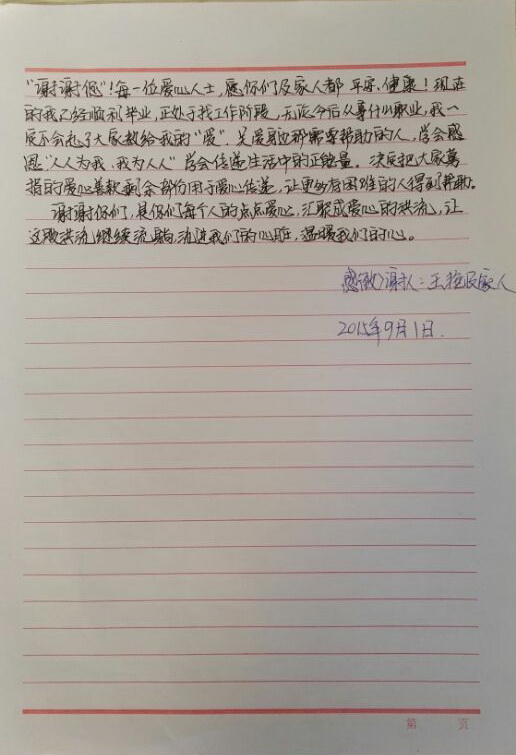 “谢谢您”！每一位爱心人士，愿你们及家人都平安、健康！现在
的我已经顺利毕业，正处于找工作阶段，无论今后从事什么职业，我一
定不会忘了大家教给我的“爱”。关爱身边那些需要帮助的人，学会感
恩“人人为我，我为人人”学会传递生活中的正能量。决定把大家募
捐的爱心善款剩余部份用于爱心传递，让更多有困难的人得到帮助。
谢谢你们，是你们每个人的点点爱心，汇聚成爱心的洪流，让
这股洪流继续流淌，流进我们的心脏，温暖我们的心。
感谢人：王 家人
2015年9月1日.
第 页